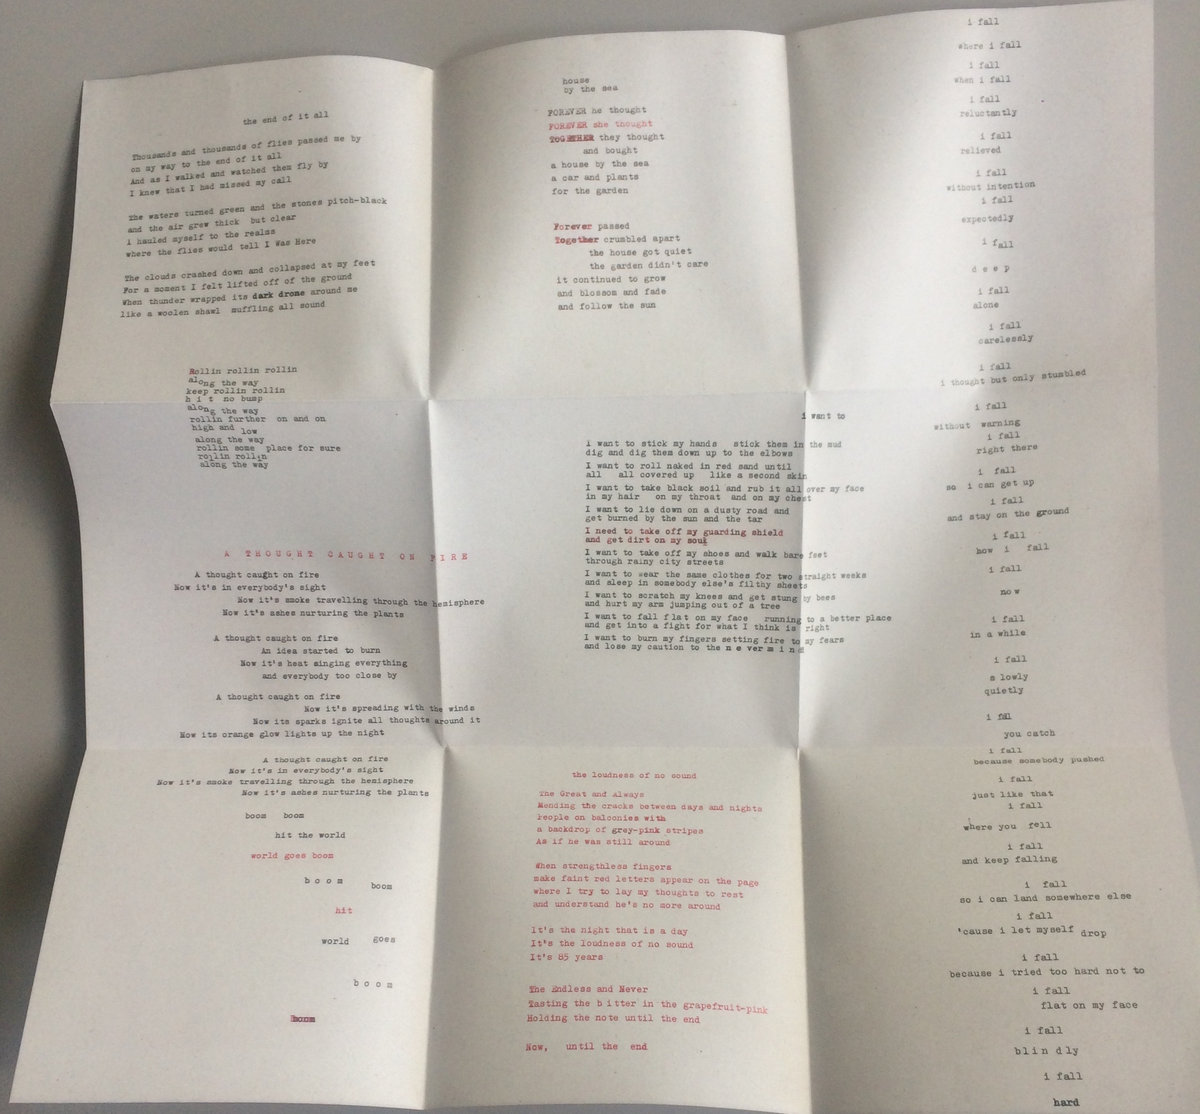 the end of it all
Thousands and thousands of flies passed me by
on my way to the end of it all
And as I walked and watched them fly by
I knew that I had missed my call
The waters turned green and the stones pitch-black
and the air grew thick but clear
i hauled myself to the realms
where the flies would tell I Was Here
The clouds crashed down and collapsed at my feet
For a moment I felt lifted off of the ground
When thunder wrapped its dark drone around me
like a woolen shawl muffling all sound
Rollin rollin rollin
along the way
keep rollin rollin
h i t no bump
along the way
rollin further on and on
high and low
along the way
rollin some place for sure
rollin rollin
along the way
A THOUGHT CAUGHT ON FIRE
A thought caught on fire
Now it's in everybody's sight
Now it's smoke travelling through the hemisphere
Now it's ashes nurturing the plants
A thought caught on fire
An idea started to burn
Now it's heat singing everything
and everybody too close by
A thought caught on fire
Now it's spreading with the winds
Now its sparks ignite all thoughts around it
Now its orange glow lights up the night
A thought caught on fire
Now it's in everybody's sight
Now it's smoke travelling through the hemisphere
Now it's ashes nurturing the plants
boom boom
hit the world
world goes boom
b o o m boom
hit
world goes
b o o m
boom
house
by the sea
FOREVER he thought
FOREVER she thought
TOGETHER they thought
and bought
a house by the sea
a car and plants
for the garden
Forever passed
Together crumbled apart
the house got quiet
the garden didn't care
it continued to grow
and blossom and fade
and follow the sun
i want to
i want to stick my hands stick them in the mud
dig and dig them down up to the elbows
I want to roll naked in red sand until
all all covered up like a second skin
I want to take black soil and rub it all over my face
in my hair on my throat and on my chest
I want to lie down on a dusty road and
get burned by the sun and the tar
I need to take off my guarding shield
and get dirt on my soul
I want to take off my shoes and walk bare feet
through rainy city streets
I want to wear the same clothes for two straight weeks
and sleep in somebody else's filthy sheets
I want to scratch my knees and get stung by bees
and hurt my arm jumping out of a tree
I want to fall flat on my face running to a better place
and get into a fight for what I think is right
I want to burn my fingers setting fire to my fears
and lose my caution to the n e v e r m i n d
the loudness of no sound
The Great and Always
Mending the cracks between days and nights
People on balconies with
a backdrop of grey-pink stripes
As if he was still around
When strengthless fingers
make faint red letters appear on the page
where I try to lay my thoughts to rest
and understand he's no more around
It's the night that is a day
It's the loudness of no sound
It's 85 years
The Endless and Never
Tasting the bitter in the grapefruit-pink
Holding the note until the end
Now, until the end
i fall
where i fall
i fall
when i fall
i fall
reluctantly
i fall
relieved
i fall
without intention
i fall
expectedly
i fall
d e e p
i fall
alone
i fall
carelessly
i fall
i thought but only stumbled
i fall
without warning
i fall
right there
i fall
so i can get up
i fall
and stay on the ground
i fall
how i fall
i fall
now
i fall
in a while
i fall
s lowly
quietly
i fall
you catch
i fall
because somebody pushed
i fall
just like that
i fall
where you fell
i fall
and keep falling
i fall
so i can land somewhere else
i fall
'cause i let myself drop
i fall
because i tried too hard not to
i fall
flat on my face
i fall
blindly
i fall
hard